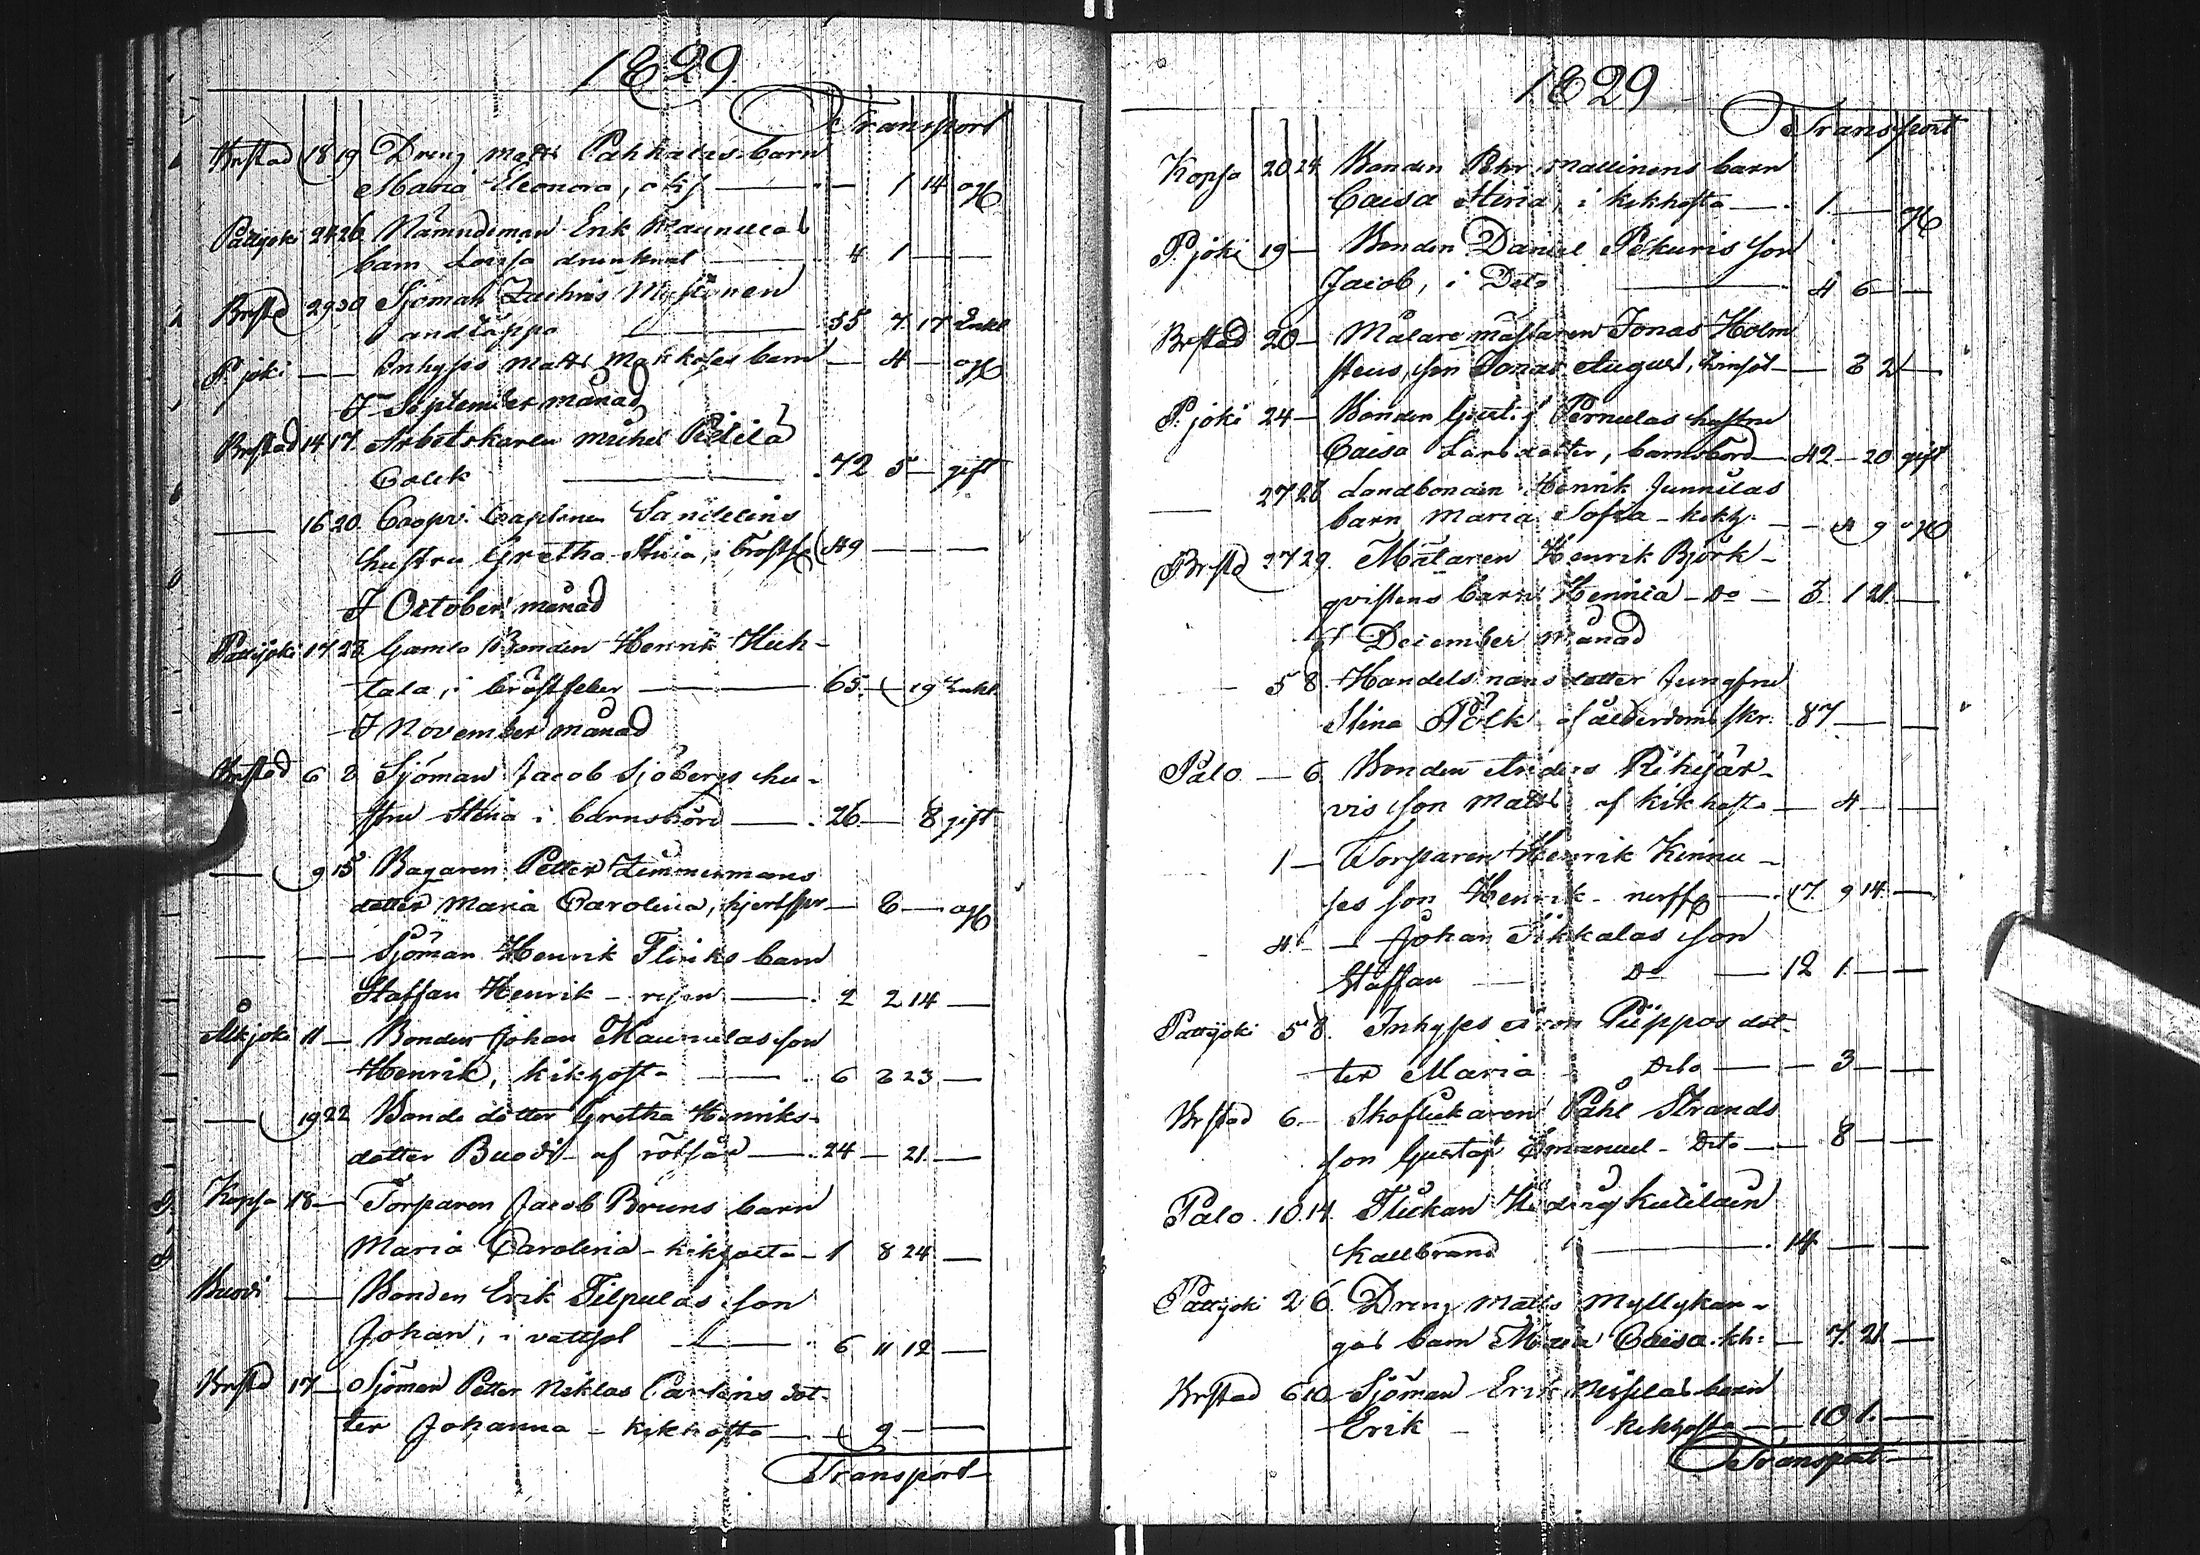 1829
Transport
Brstad 18 19 Dreng Matts Pahkalas barn
Maria Eleonora, okj — — 1 14 ogf
Pattijoki 24 26 Nämndeman Erik Maunulas
barn Lovisa drunknat — 4 1 — —
Brstd 29 30 Sjöman Zachris
andtäppa — 55 7 17 Enkl
P. joki — — Inhyses Matts Makkoses barn — 4 — ogf
I September månad
Brstad 14 17. Arbetskarlen Michel Pietilä
Colik — 72 5 — gift
— 16 20. Coopv. Captenen Sandelins
hustru Gretha Stina, i bröstf 49 — — —
I October månad
Pattijoki 17 23 Gamla Bonden Henrik Huh-
tala, i bröstfeber — 65. — 19 Enkl.
I November månad
Brstad 6 8 Sjöman Jacob Sjöbergs hu-
stru Stina i barnsbörd — 26 — 8 gift
— 9 15 Bagaren Petter Zimmermans
dotter Maria Carolina, hjertspr — 8 — ogf
— — Sjöman Henrik Flinks barn
Staffan Henrik — — 2 2 14 —
Olkjoki 11 — Bonden Johan Maunulas son
Henrik, kikhosta — 6 3 23 —
— 19 22 Bonde dotter Gretha Henriks-
dotter Buodi — af rötsår — 24 — 21 —
Kopsa 18 — Torparen Jacob Bruns barn
Maria Carolina — kikhosta — 1 8 24 —
Buodi — Bonden Erik Tilpulas son
Johan, i vattsot — 6 11 12 —
Brstd 17 — Sjöman Petter Niklas Carlens dot-
ter Johanna — kikhosta — — 9 — —
Transport
1829
Transport
Kopsa 20 24 Bonden Pehr Mallinens barn
Caisa Stina, i kikhosta — 1. — — ogf
P. joki 19 — Bonden Daniel Pekuris son
Jacob, i Dito — 4 6 — —
Brstad 20 — Målare mästaren Jonas Holm
stens son Jonas August, — — 3 2 —
P. joki 24 — Bonden Gustaf Pernulas hustru
Caisa Larsdotter, barnsbörd — 42 — 20 gift
— 27 28 Landbonden Henrik Junnilas
barn Maria Sofia — kikh. — — 4 9 ogf
Brstd 27 29. Målaren Henrik Björk-
qvistens barn Henrica — Do — 3. 1 21. —
I December månad
— 5 8. Handelsmans dotter Jungfru
Stina Pölk af ålderdoms skr. 87 — —
Palo — 6 Bonden Anders Rihijär-
vis son Matts af kikhosta — 4 — —
1 — Torparen Henrik Kinnu-
ses son Henrik — nerff — 17. 9 14. —
4 — — Johan Tikkalas son
Staffan — Do — 12 1. — —
Pattijoki 5 8. Inhyses Piippos dot-
ter Maria — Dito — — 3 — —
Brstad 6. — Skoflickaren Påhl Strands
son Gustaf Emanuel — Dito — — 8 — —
Palo. 10. 14. Flickan Hedvig
Kallbrand — 14 — —
Pattijoki 2 6. Dreng Matts Myllykan-
gas barn Maria Caisa. kh: — 7. 21. —
Brstad 6 10 Sjöman Erik barn
Erik — kikhosta — — 10 1. —
Transport